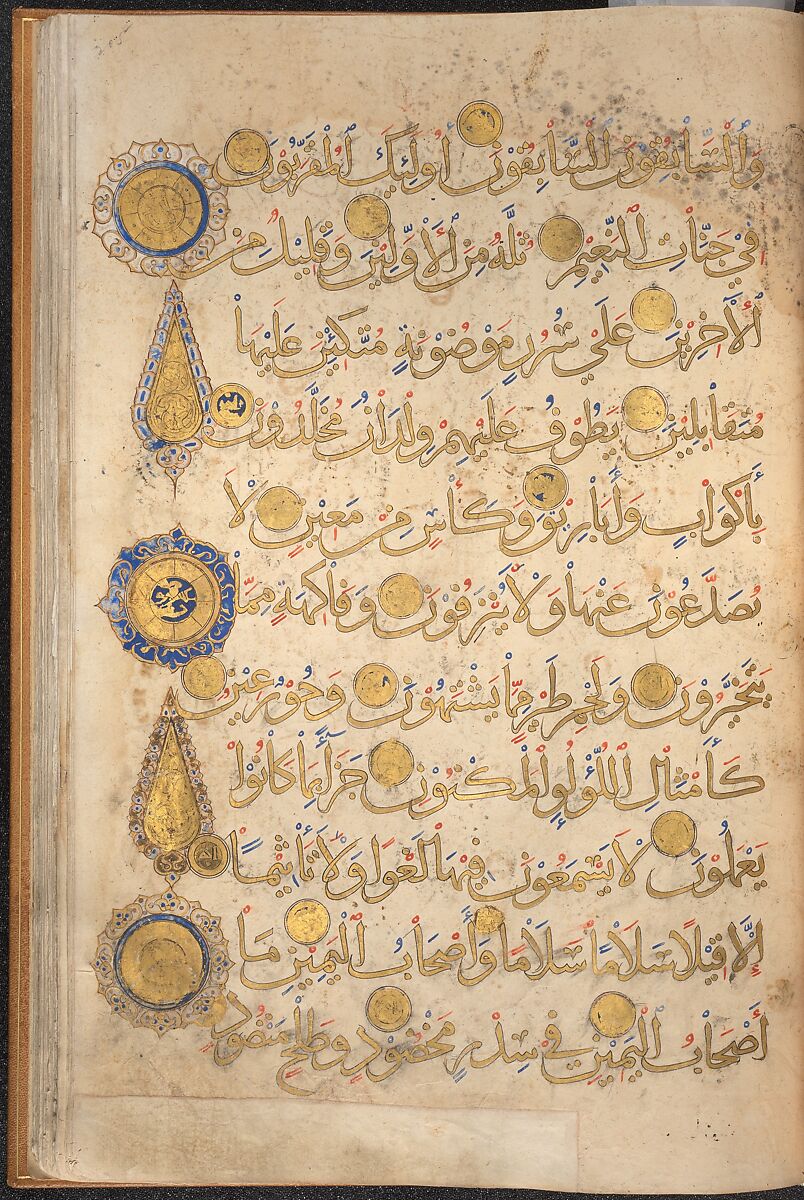 وَٱلسَّابِقُونَ ٱلسَّابِقُونَ أُولَئِكَ ٱلْمُقَرَّبُونَ
فِي جَنَّاتِ ٱلنَّعِيمِ ثُلَّةٌ مِنَ ٱلْأَوَّلِينَ وَقَلِيلٌ مِنَ
ٱلْآخِرِينَ عَلَى سُرُرٍ مَوْضُونَةٍ مُتَّكِئِينَ عَلَيْهَا
مُتَقَابِلِينَ يَطُوفُ عَلَيْهِمْ وِلْدَانٌ مُخَلَّدُونَ
بِأَكْوَابٍ وَأَبَارِيقَ وَكَأْسٍ مِنْ مَعِينٍ لَا
يُصَدَّعُونَ عَنْهَا وَلَا يُنْزِفُونَ وَفَاكِهَةٍ مِمَّا
يَتَخَيَّرُونَ وَلَحْمِ طَيْرٍ مِمَّا يَشْتَهُونَ وَحُورٌ عِينٌ
كَأَمْثَالِ ٱللُّؤْلُؤِ ٱلْمَكْنُونِ جَزَاءً بِمَا كَانُوا
يَعْمَلُونَ لَا يَسْمَعُونَ فِيهَا لَغْوًا وَلَا تَأْثِيمًا
إِلَّا قِيلًا سَلَامًا سَلَامًا وَأَصْحَابُ ٱلْيَمِينِ مَا
أَصْحَابُ ٱلْيَمِينِ فِي سِدْرٍ مَخْضُودٍ وَطَلْحٍ مَنْضُودٍ